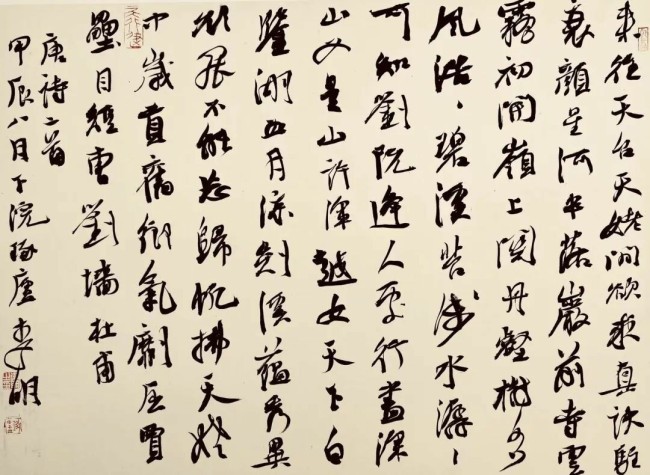 來往天台天姥間欲求真訣駐
衰顏星河半落巖前寺雲
霧初開嶺上關丹壑樹多
風浩、碧溪苔淺水潺、
可知劉阮逢人處行盡深
山又是山許渾越女天下白
鑒湖五月涼剡溪蘊秀異
欲罷不能忘歸帆拂天姥
中歲貢舊鄉氣劘屈賈
壘目短曹劉墻杜甫
唐詩二首
甲辰八月下浣廬李明